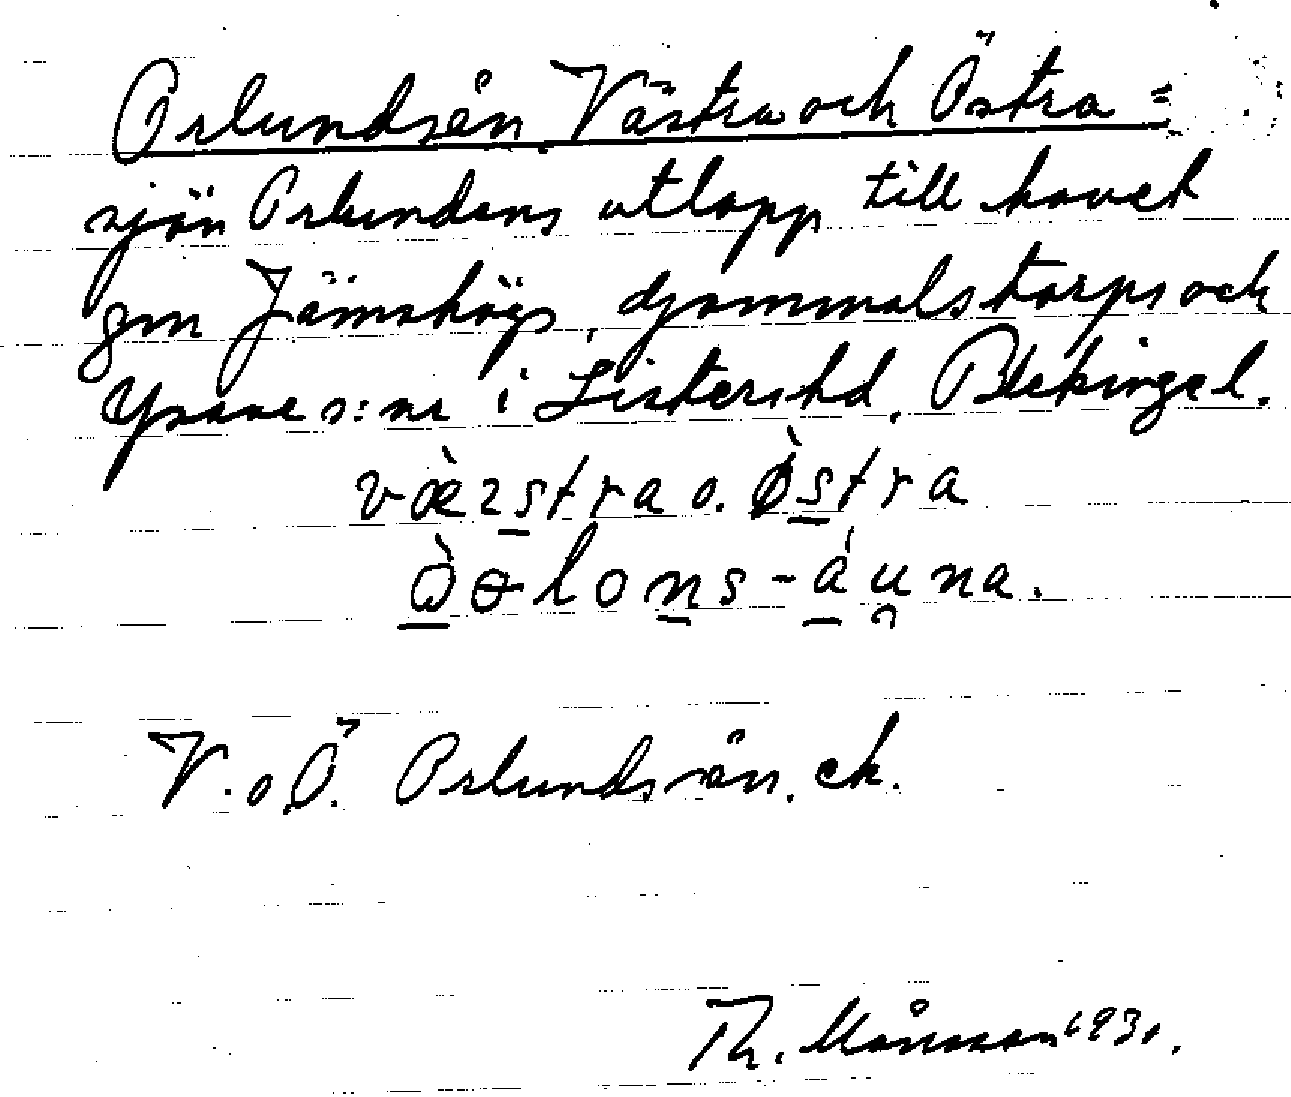 Orlundsån Västra och Östra =
sjön Orlundens utlopp till havet
gm Jämshögs, Gammalstorps och
Ysane s:nr i Listers hd. Blekinge l.
væ̀zstra o. ø̀stra
ɷ̀ɵlons-áu̯na.
V. o Ö. Orlundsån. ek.
Th. Månsson 1931.